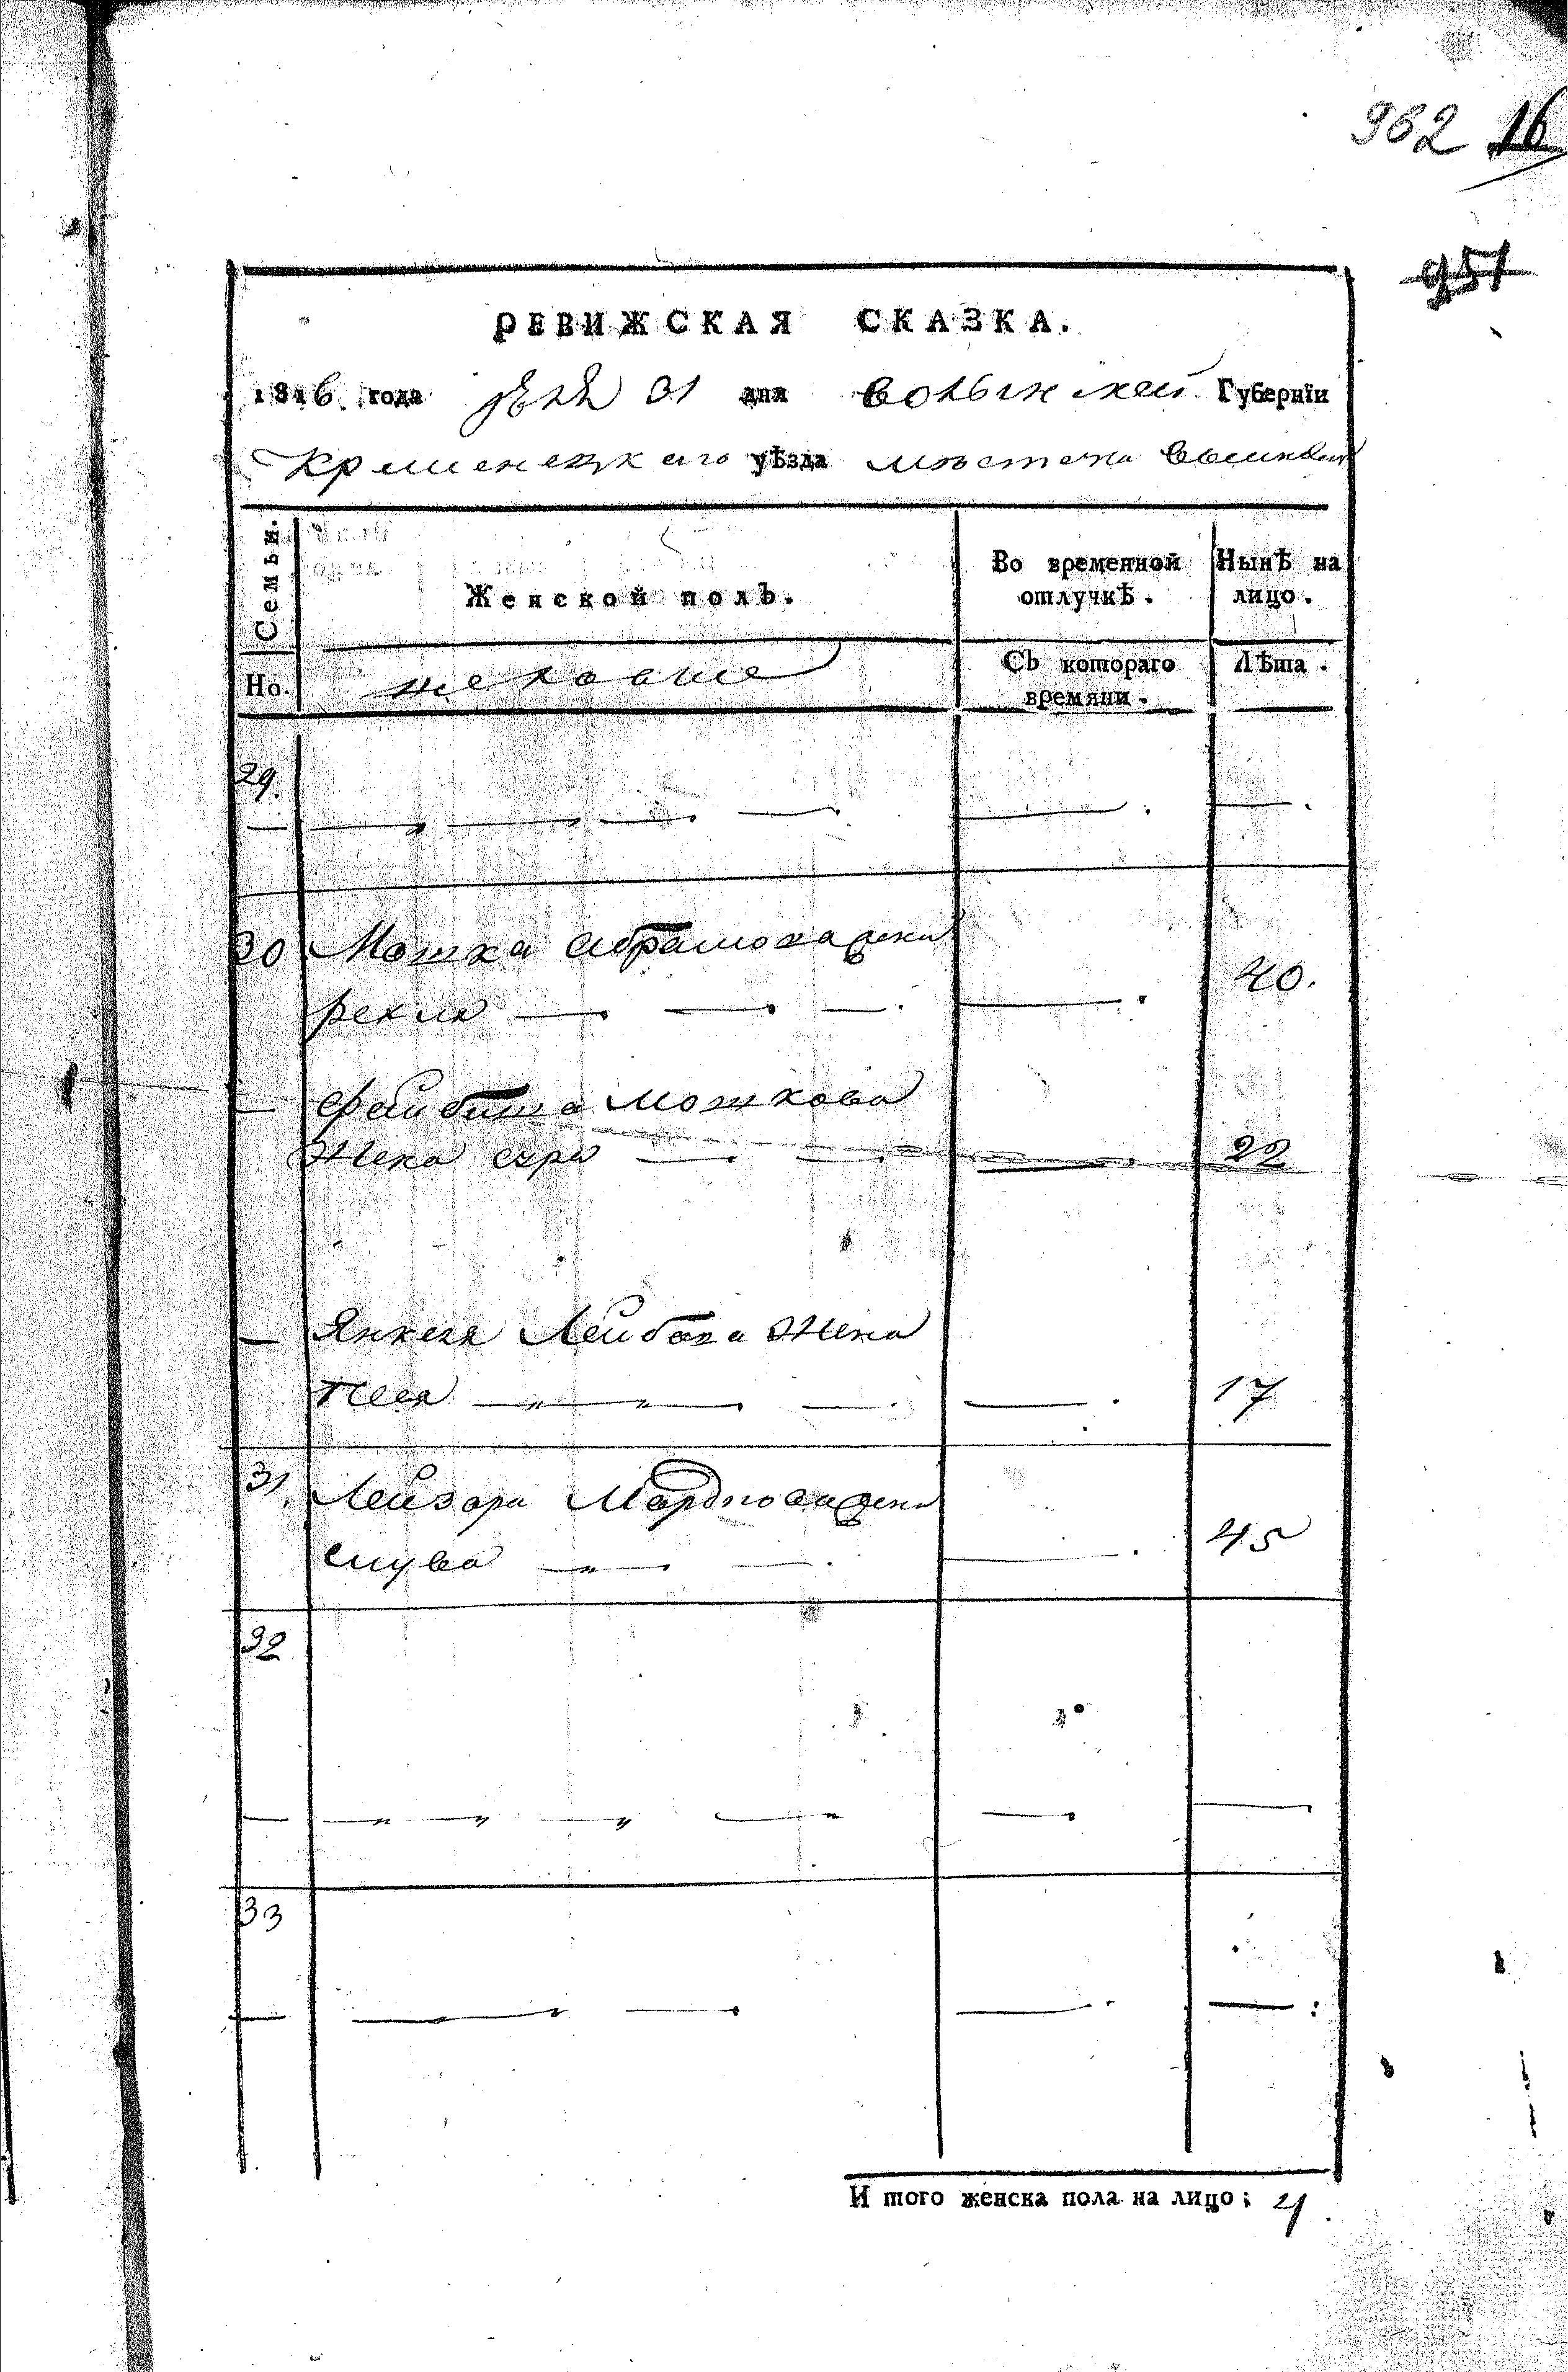 962 16
951
РЕВИЖСКАЯ СКАЗКА.
1816. года 31 дня Волынской Губернїи
Кременецкаго уѣзда местечка
Семьи.
Женской полъ.
Во временной отлучкѣ.
Нынѣ на лицо.
Но.
Съ котораго времяни.
Лѣта.
29.
30 Мошка Абрамова жена
рекля 40.
Файбиша Мошкова
жена сура 22
Янкеля Лейбова жена
песя 17
31. Лейзора Мордковича жена
45
32
33
И того женска пола на лицо: 4.